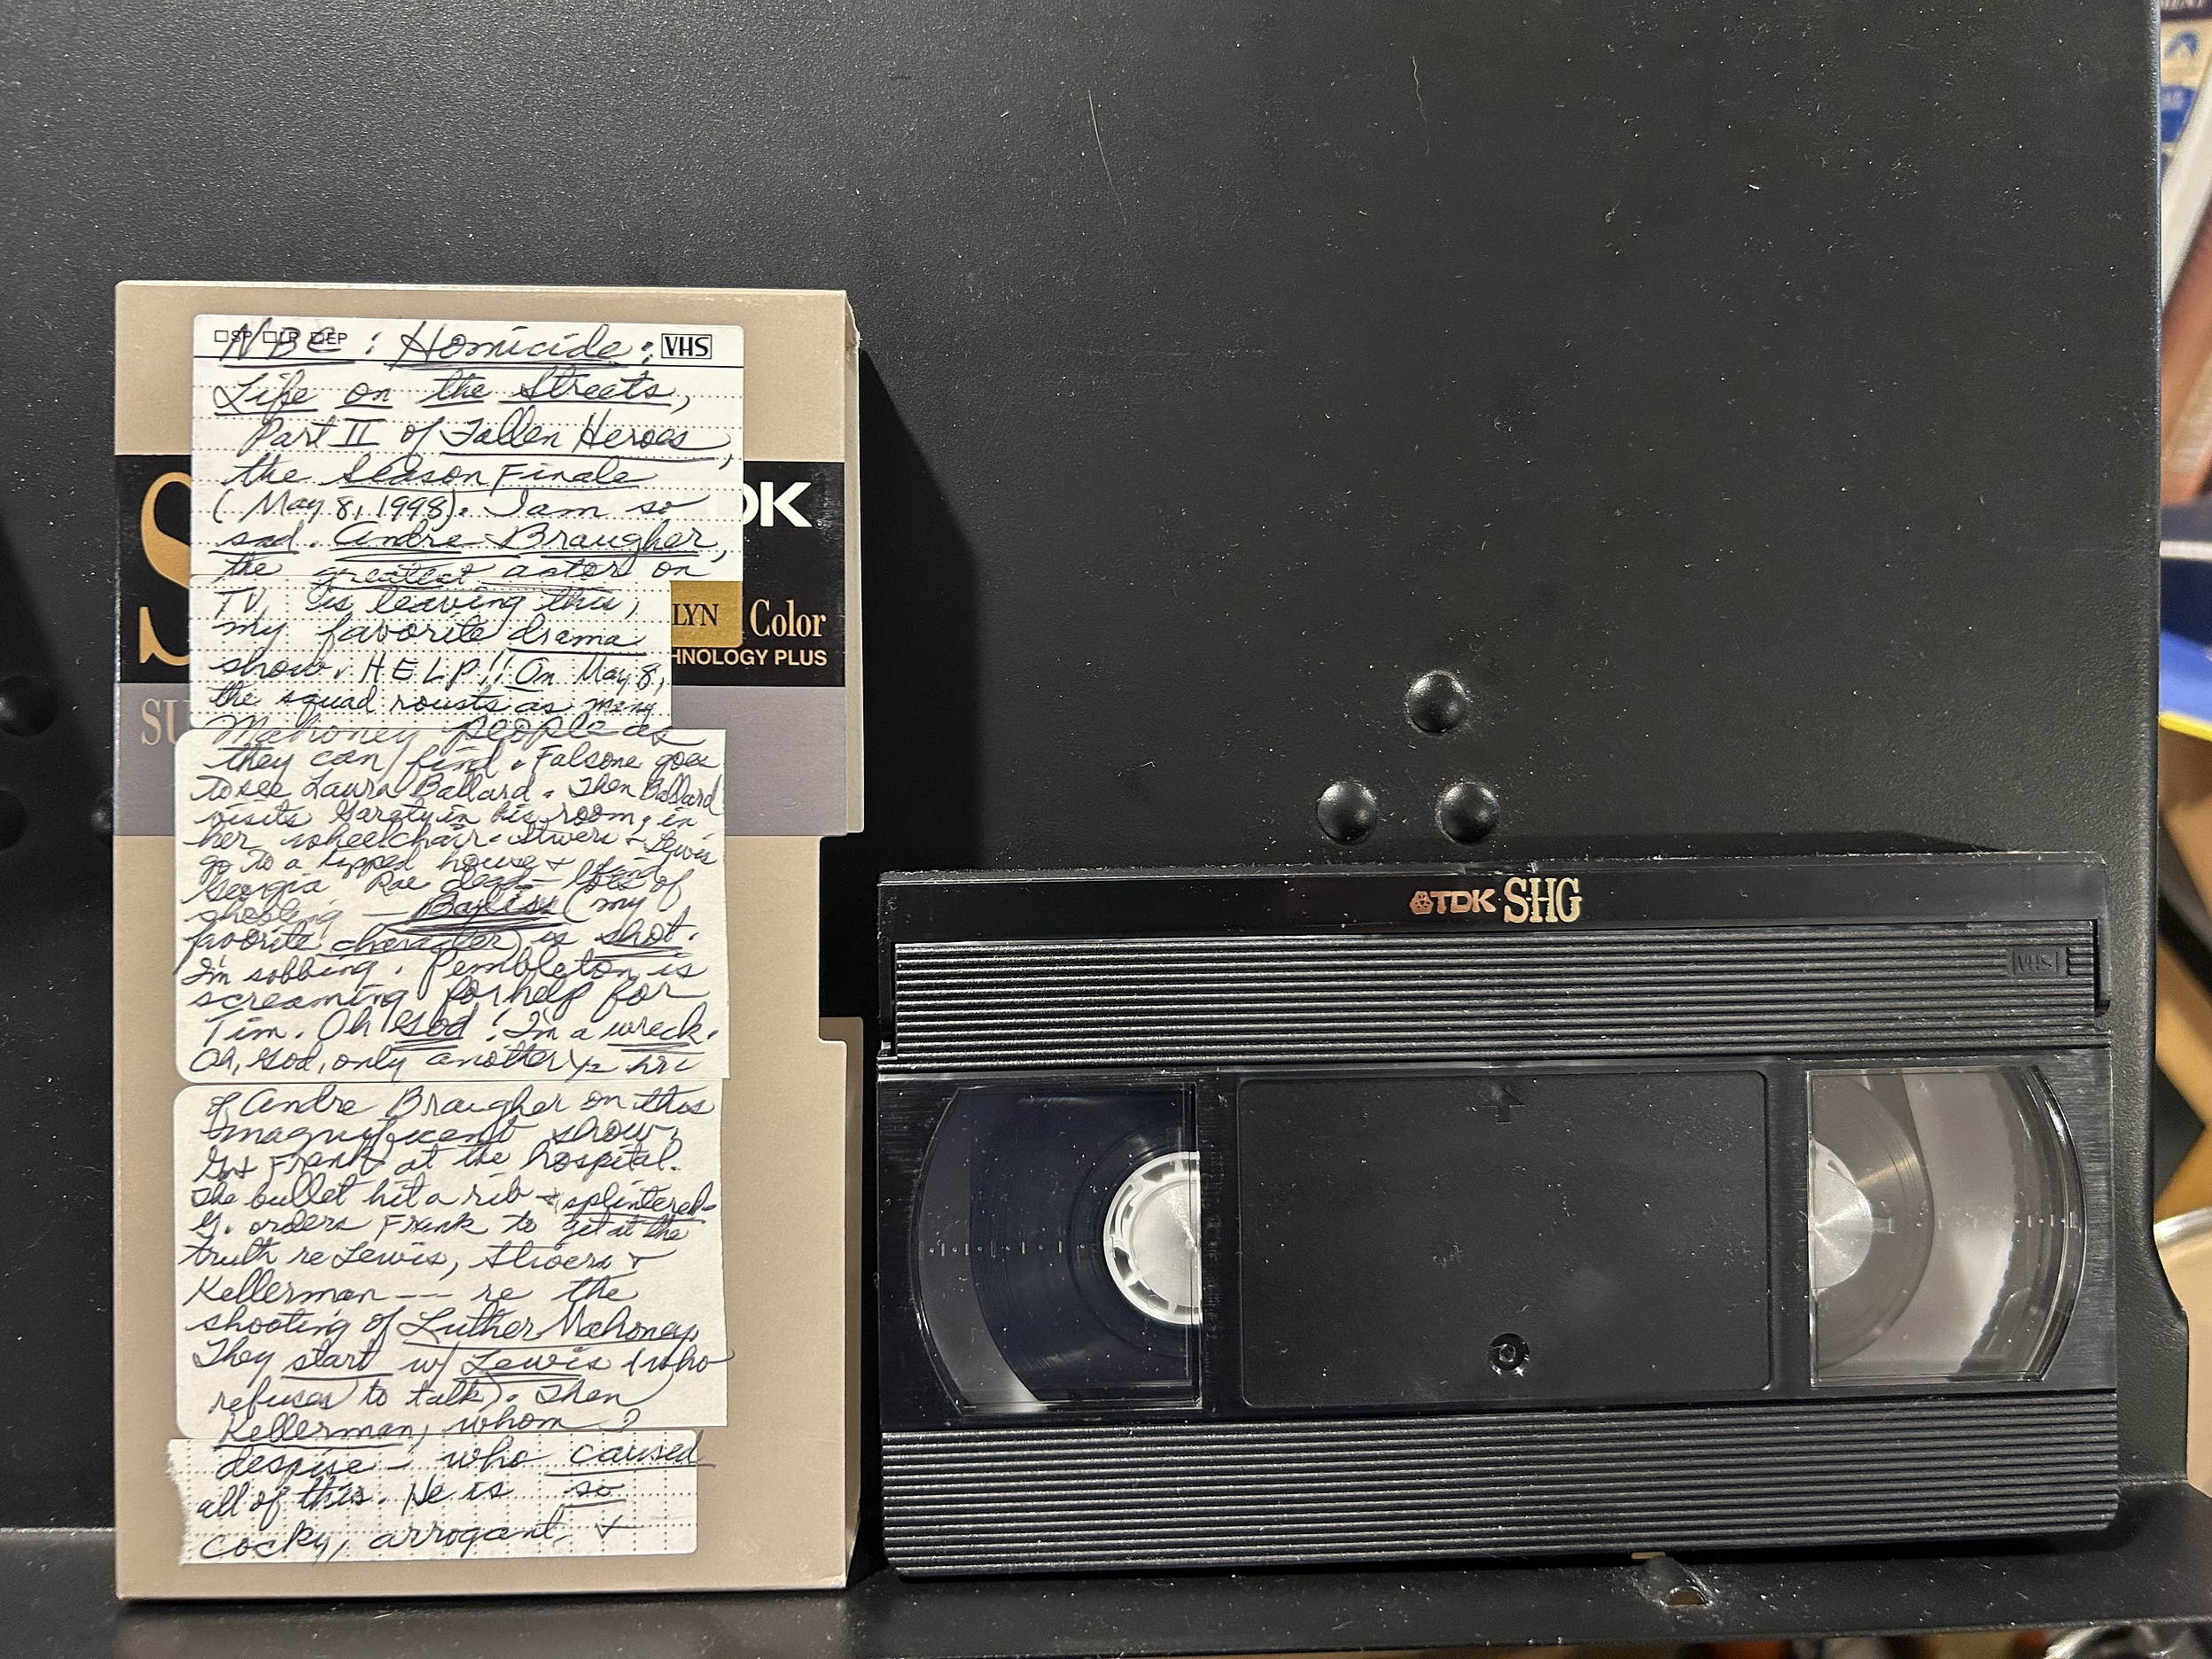 □SP □LP □EP
NBC: Homicide: VHS
Life on the Streets,
Part II of Fallen Heroes,
the Season Finale
(May 8, 1998). I am so
sad. Andre Braugher,
the greatest actor on
TV, is leaving this,
my favorite drama
show. HELP!! On May 8,
the squad rousts as many
Mahoney people as
they can find. Falsone goes
to see Laura Ballard. Then Ballard
visits Garaty in his room, in
her wheelchair. Stivers & Lewis
go to a tipped house & find
Georgia Rae dead – lots of
shooting — Bayliss (my
favorite character) is shot.
I'm sobbing. Pembleton is
screaming for help for
Tim. Oh God! I'm a wreck.
Oh, God, only another ½ hr
of Andre Braugher on this
magnificent show.
G & Frank at the hospital.
The bullet hit a rib & splintered.
G. orders Frank to get at the
truth re Lewis, Stivers &
Kellerman --- re the
shooting of Luther Mahoney.
They start w/ Lewis (who
refuses to talk). Then
Kellerman, whom I
despise – who caused
all of this. He is so
cocky, arrogant, &
S
DK
LYN Color
HNOLOGY PLUS
SU
TDK SHG
VHS